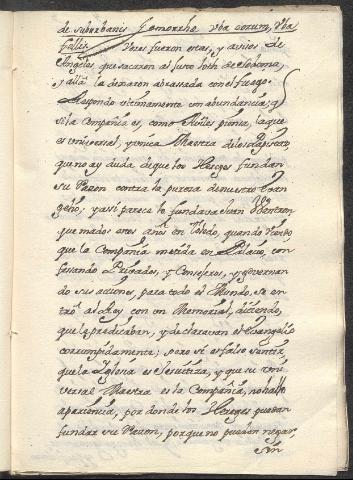 de suburbanis Gomorrhe vba eorum, vba
fellis. Vozes fueron estas, y avisos de
Angeles, que sacaron al justo Loth de Sodoma,
y alla la dexaron abrassada con el fuego.
Respondo ultimamente con abundancia; q
si la Compañia es, como ellos, la que
es universal, y unica Maestra de los
que no ay duda de que los Hereges fundan
su Razon contra la pureza de nuestro Evan
gelio; y assi parece lo fundava Juan
quemados estos años en Toledo, quando viendo,
que la Compañia metida en Palacio, con
fessando Privados, y Consejeros, y governan
do sus acciones, para todo el Mundo, se en
trò al Rey con un Memorial, diciendo,
que le predicaban, y declaravan el Evangelio
corrompidamente; pero si es falso sentir,
que la Iglesia es Jesuitiza, y que su Uni
versal Maestra es la Compañia, no hallo
apariencia, por donde los Hereges puedan
fundar su Razon, porque no pueden negar,
sin